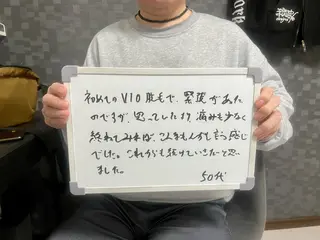 初めてのVIO脱毛で、緊張があった
のですが、思ってしたより痛みも少なく
終わてみれば、こんなもんかと言う感じ
でした。これからも続けていきたいと思い
ました。
50代